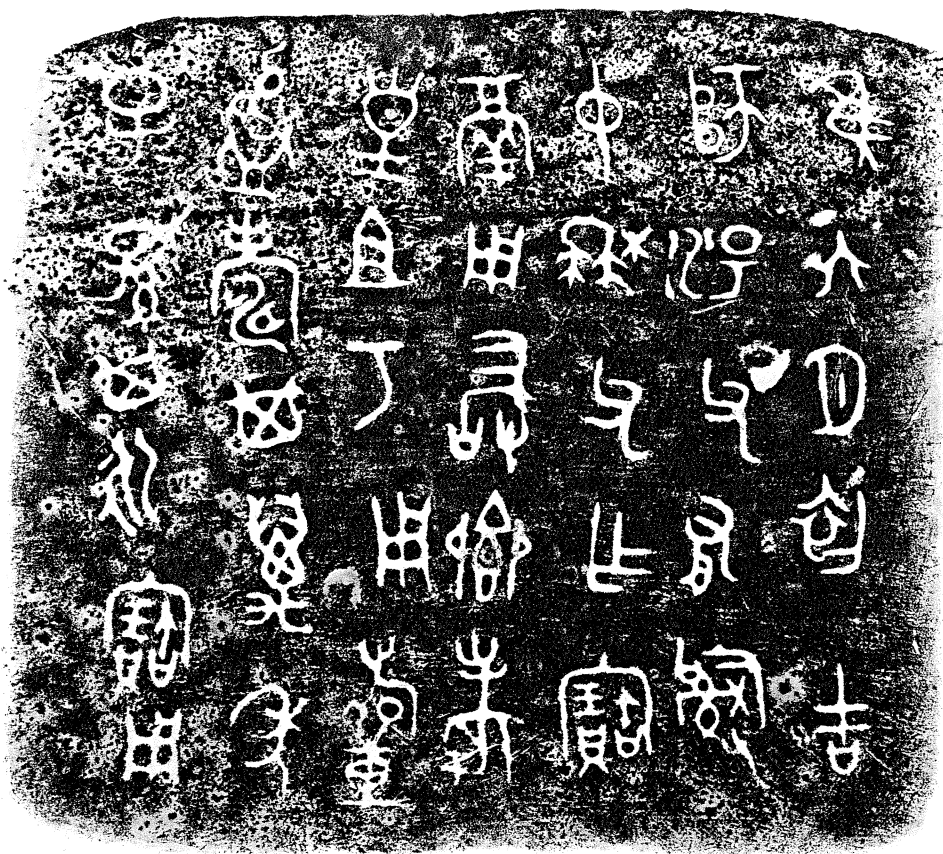 隹六月初吉
師湯父有𤔲
中枏父乍寶
鬲用敢鄉孝于
皇且丂用𣄨
眉壽其萬年
子孫其永寶用